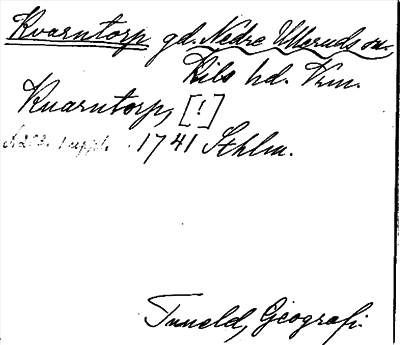 Kvarntorp gd. Nedre Ulleruds sn.
Kils hd. Vrm.
Knarntorp, [!]
1 uppl. 1741 Sthlm.
Tuneld, Geografi.